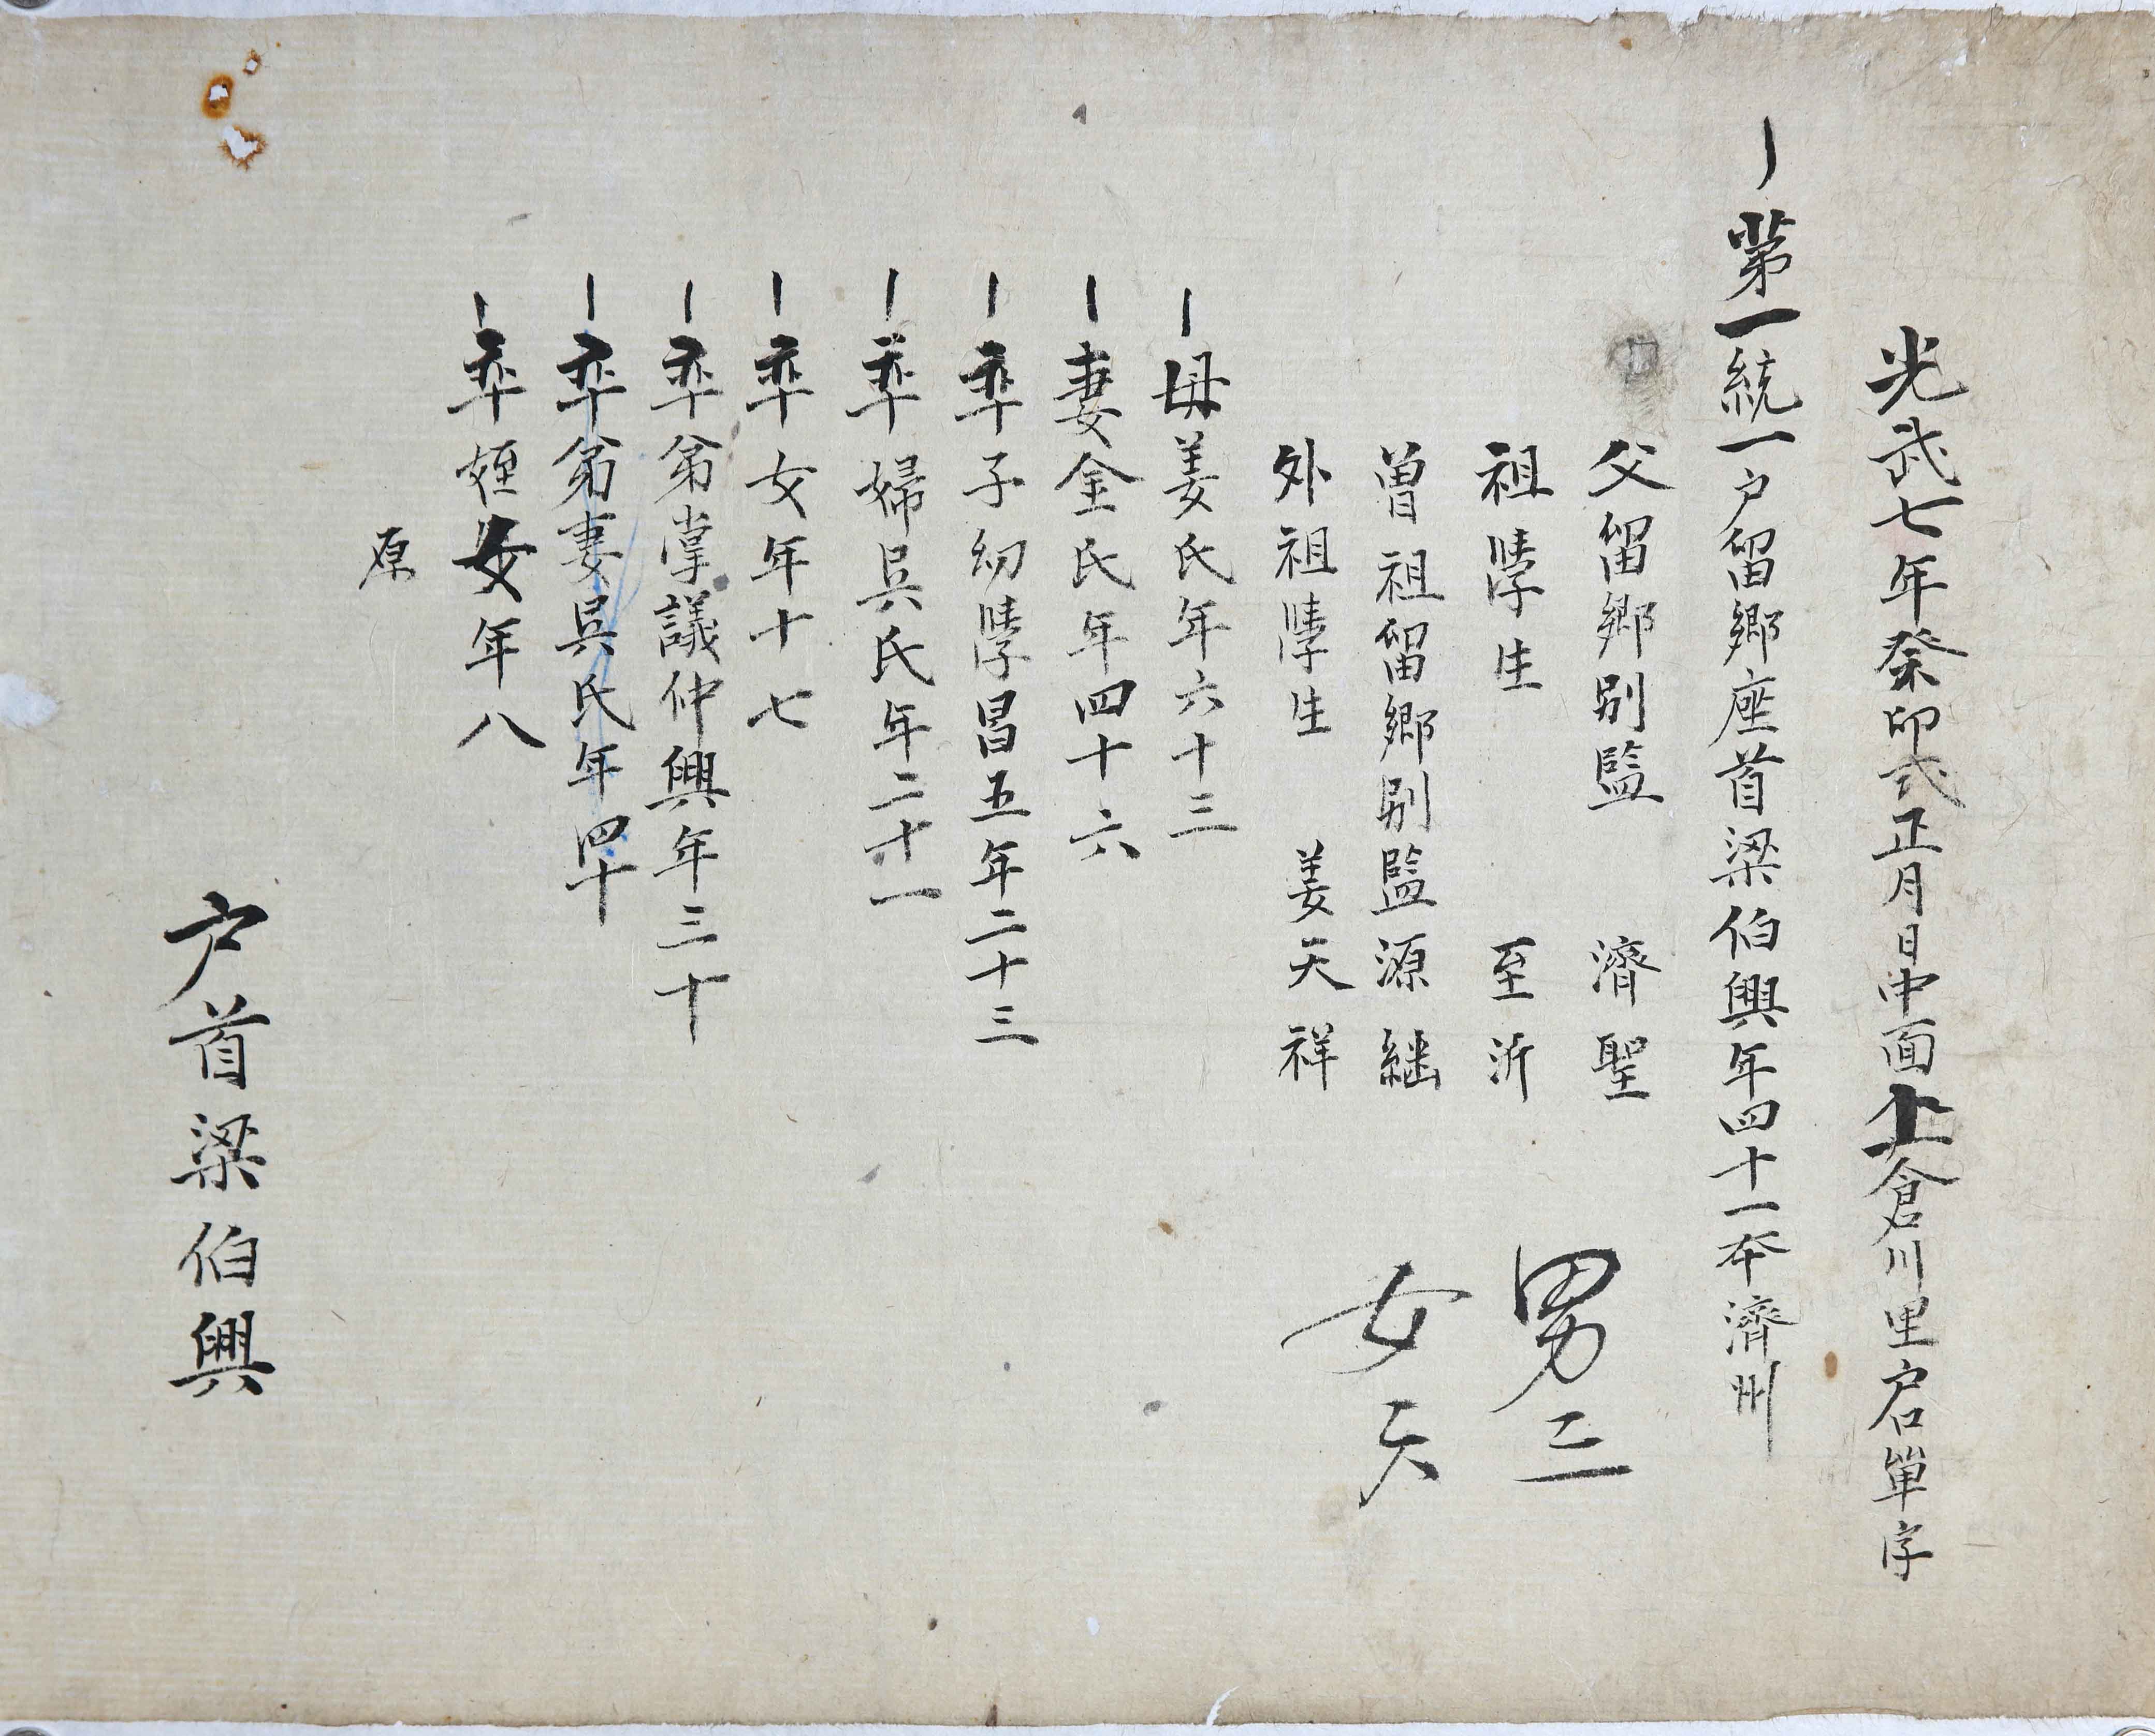 光武七年癸卯式正月日中面上倉川里戶口單字
一第一統一戶留鄕座首梁伯興年四十一本濟州
父留鄕別監 濟聖
祖學生 至沂
曾祖留鄕別監源繼
外祖學生 姜天祥
男三
女六
一母姜氏年六十三
一妻金氏年四十六
一率子幼學昌五年二十三
一率婦吳氏年二十一
一率女年十七
一率弟掌議仲興年三十
一率弟妻吳氏年四十
一率姪女年八
原
戶首梁伯興